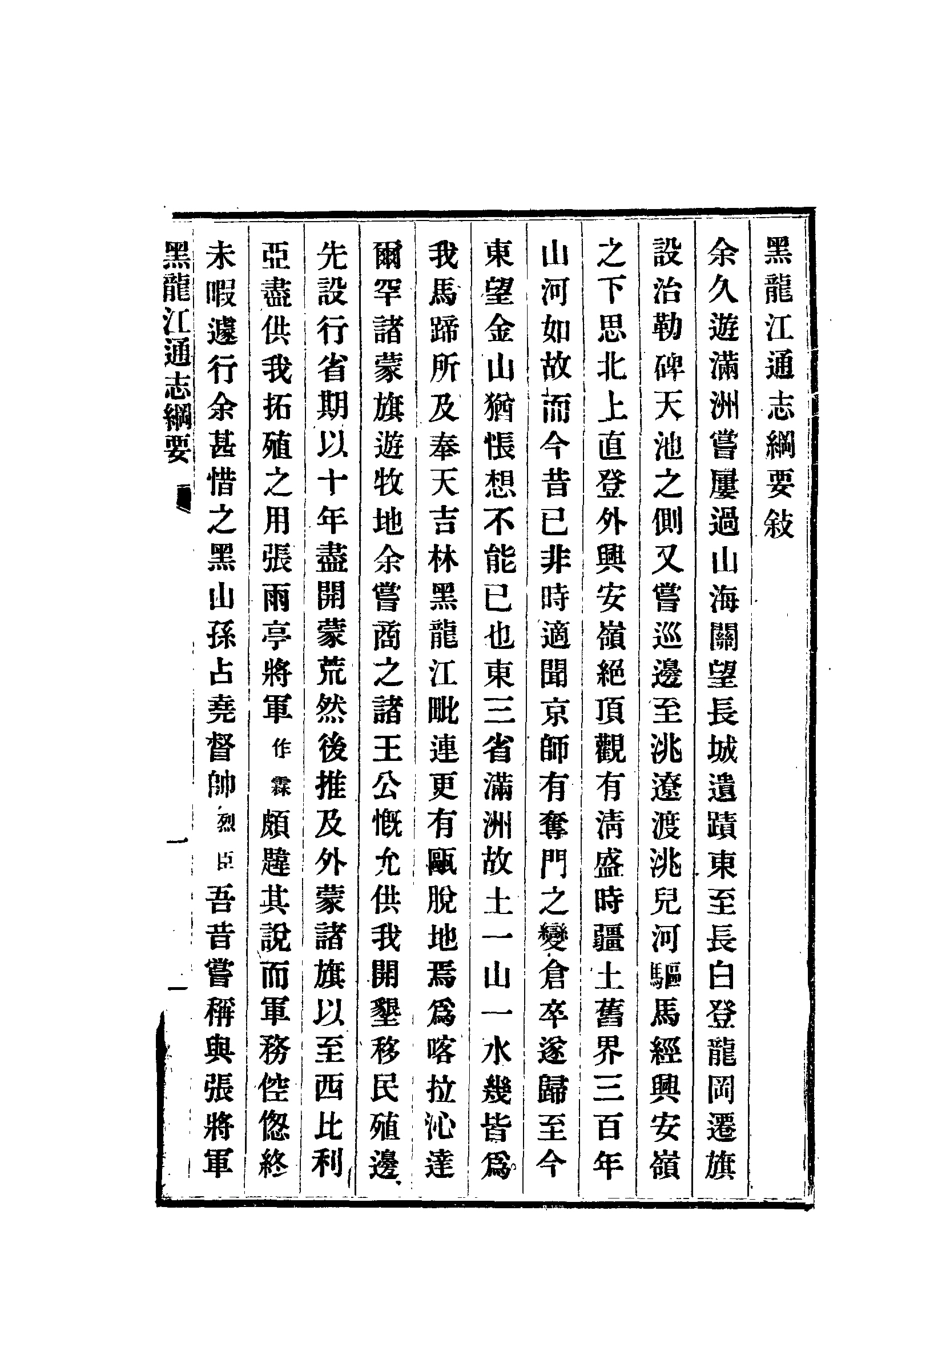 黑龍江通志綱要敍
余久遊滿洲嘗屢過山海關望長城遺蹟東至長白登龍岡遷旗
設治勒碑天池之側又嘗巡邊至洮遼渡洮兒河驅馬經興安嶺
之下思北上直登外興安嶺絕頂觀有淸盛時疆土舊界三百年
山河如故而今昔已非時適聞京師有奪門之變倉卒遂歸至今
東望金山猶悵想不能已也東三省滿洲故土一山一水幾皆爲
我馬蹄所及奉天吉林黑龍江毗連更有甌脫地焉爲喀拉沁達
爾罕諸蒙旗遊牧地余嘗商之諸王公慨允供我開墾移民殖邊
先設行省期以十年盡開蒙荒然後推及外蒙諸旗以至西比利
亞盡供我拓殖之用張雨亭將軍作霖頗韙其說而軍務倥傯終
未暇遽行余甚惜之黑山孫占堯督帥烈臣吾昔嘗稱與張將軍
黑龍江通志綱要 一